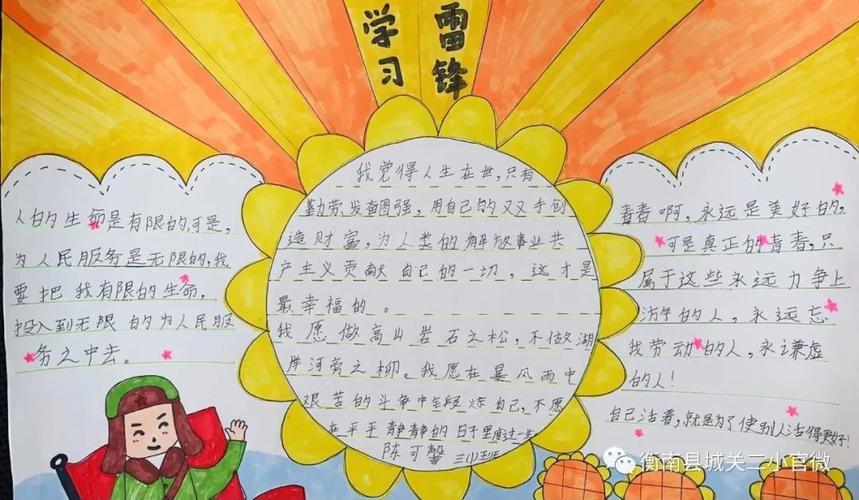 学习
雷锋
人的生命是有限的,可是,
为人民服务是无限的,我
要把我有限的生命,
投入到无限的为人民服
务之中去。
我觉得人生在世,只有
勤劳、发奋图强,用自己的双手创
造财富,为人类的解放事业共
产主义贡献自己的一切,这才是
最幸福的。
我愿做高山岩石之松,不做湖
岸河旁之柳。我愿在暴风雨中
艰苦的斗争中锻炼自己,不愿
在平平静静的日子里度过一生
陈可馨 三(1)班
青春啊,永远是美好的,
可是真正的青春,只
属于这些永远力争上
游的人,永远忘
我劳动的人,永谦虚
的人!
自己活着,就是为了使别人活得更好!
衡南县城关二小官微